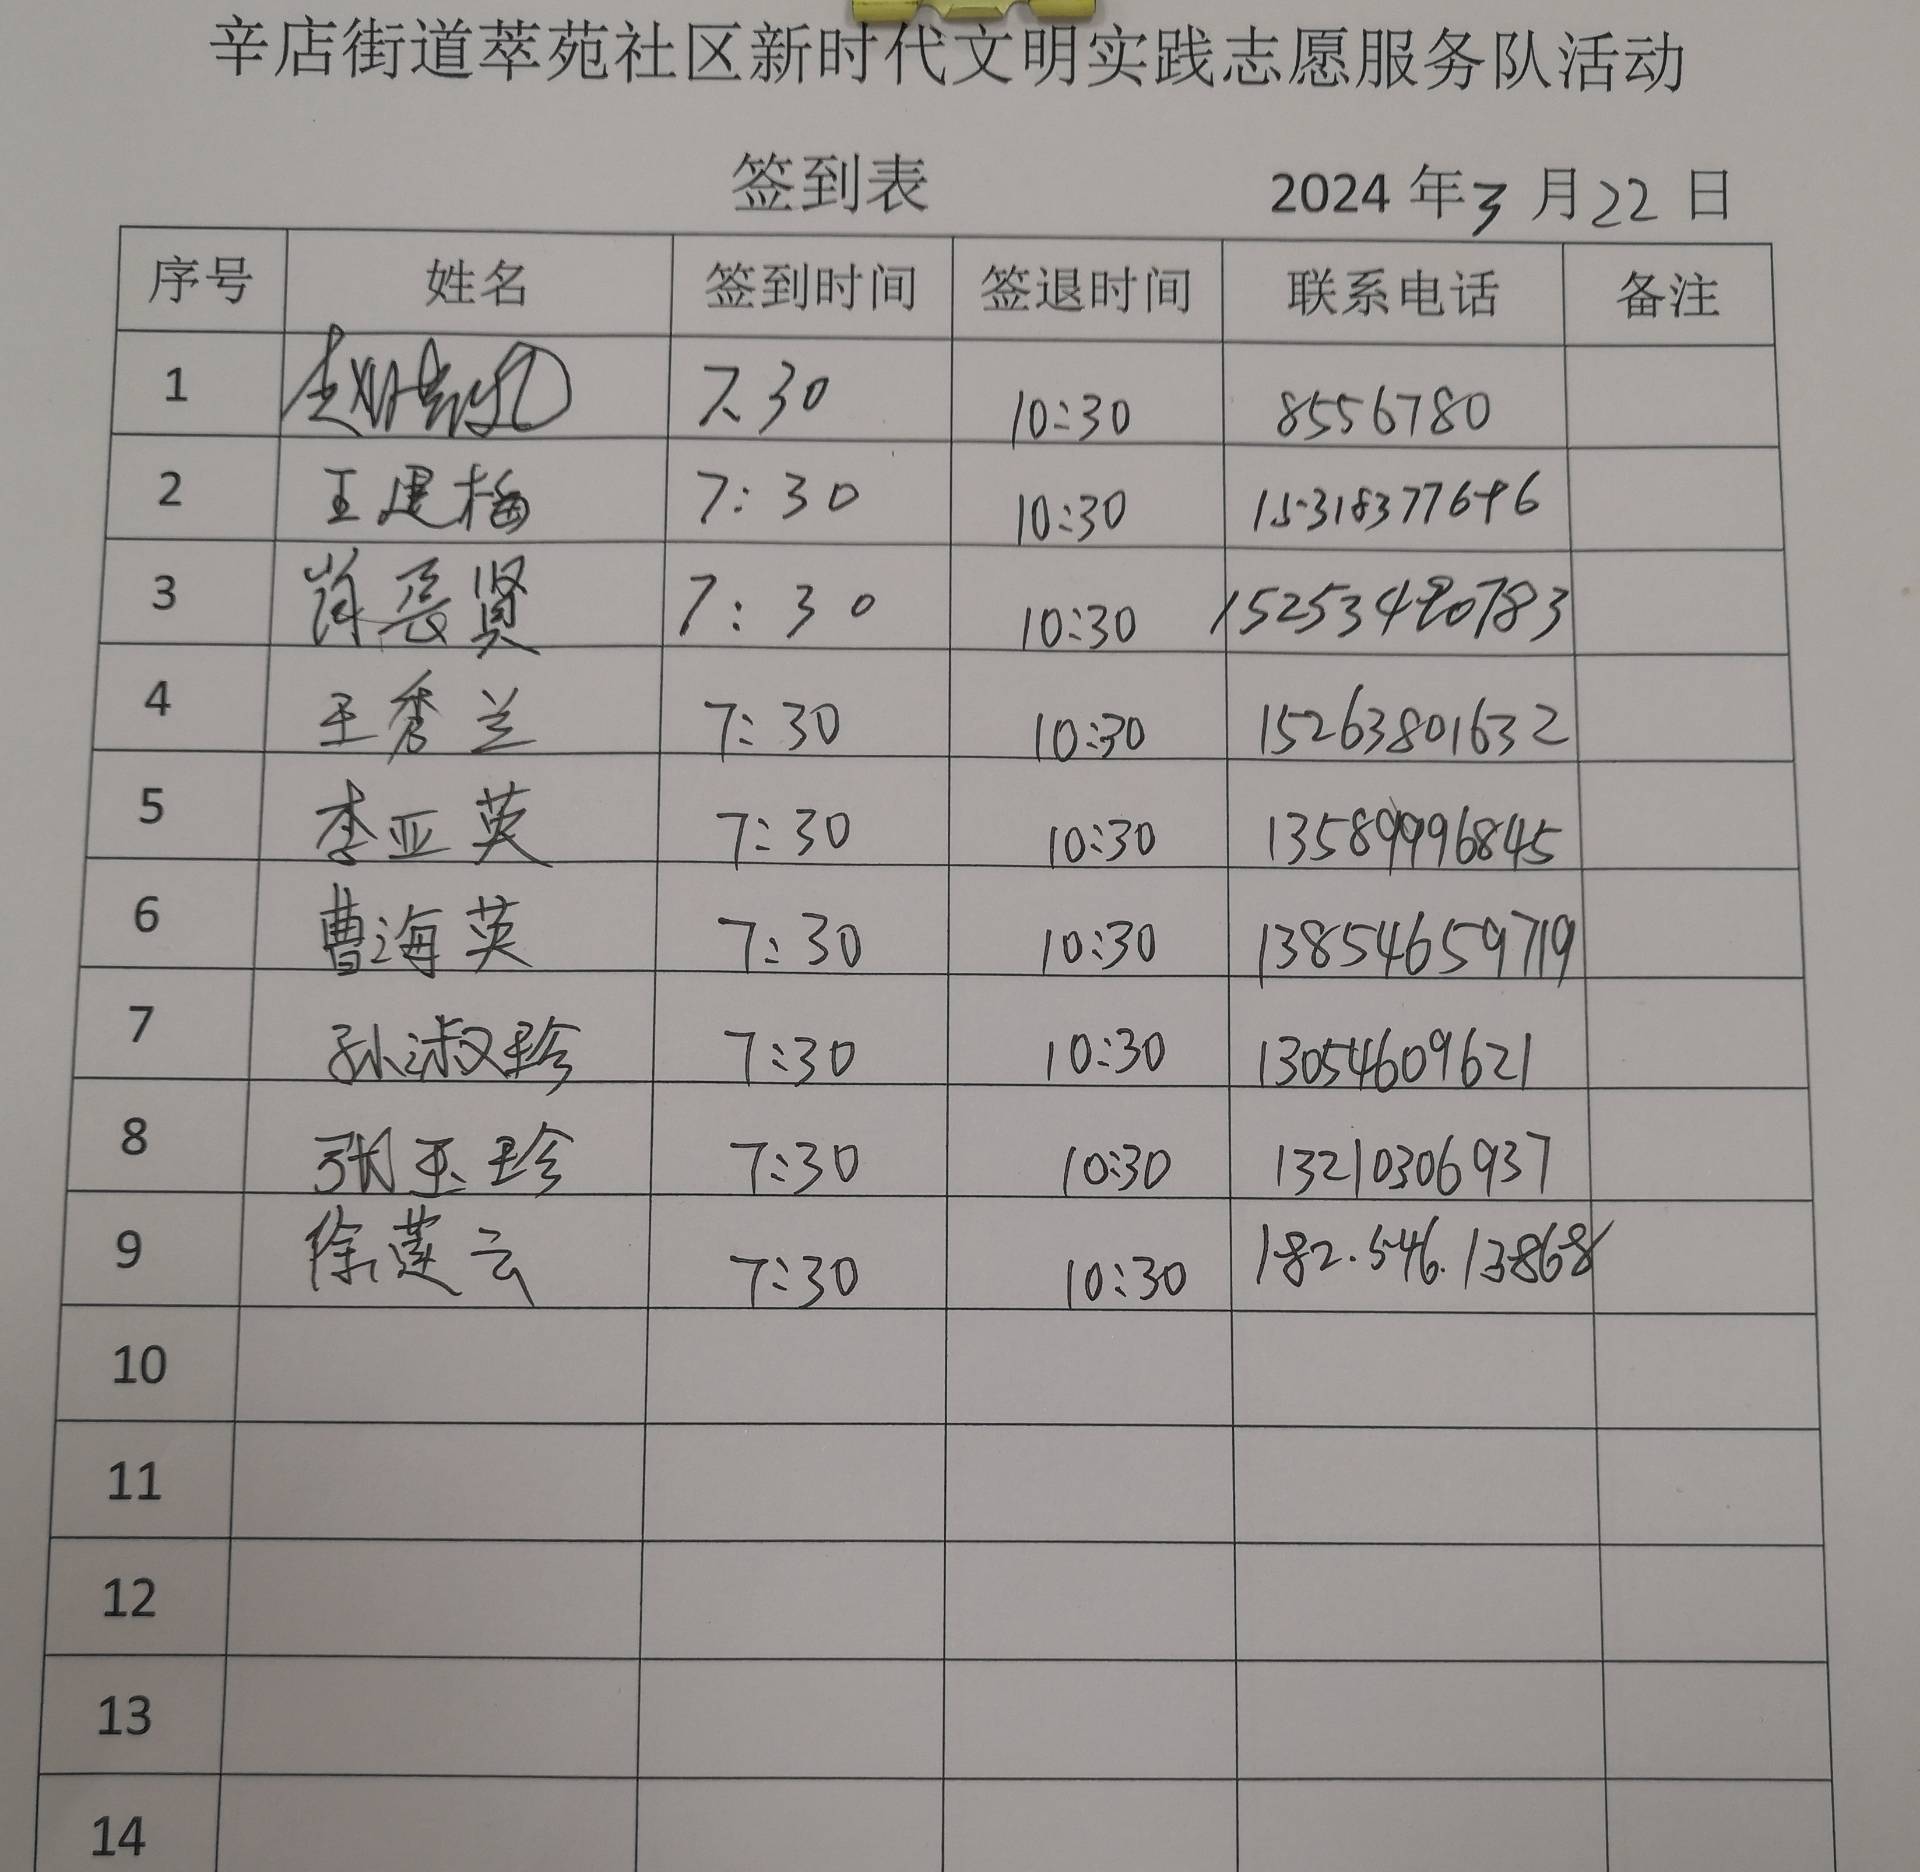 辛店街道萃苑社区新时代文明实践志愿服务队活动
签到表 2024 年 3 月 22 日
序号 姓名 签到时间 签退时间 联系电话 备注
1 7:30 10:30 8556780
2 王建梅 7:30 10:30
3 肖 贤 7:30 10:30 15253480783
4 王秀兰 7:30 10:30 15263801632
5 李亚英 7:30 10:30 13589996845
6 曹海英 7:30 10:30 13854659719
7 孙淑珍 7:30 10:30 13054609621
8 张玉珍 7:30 10:30 13210306937
9 徐莲云 7:30 10:30 182.546.13868
10
11
12
13
14